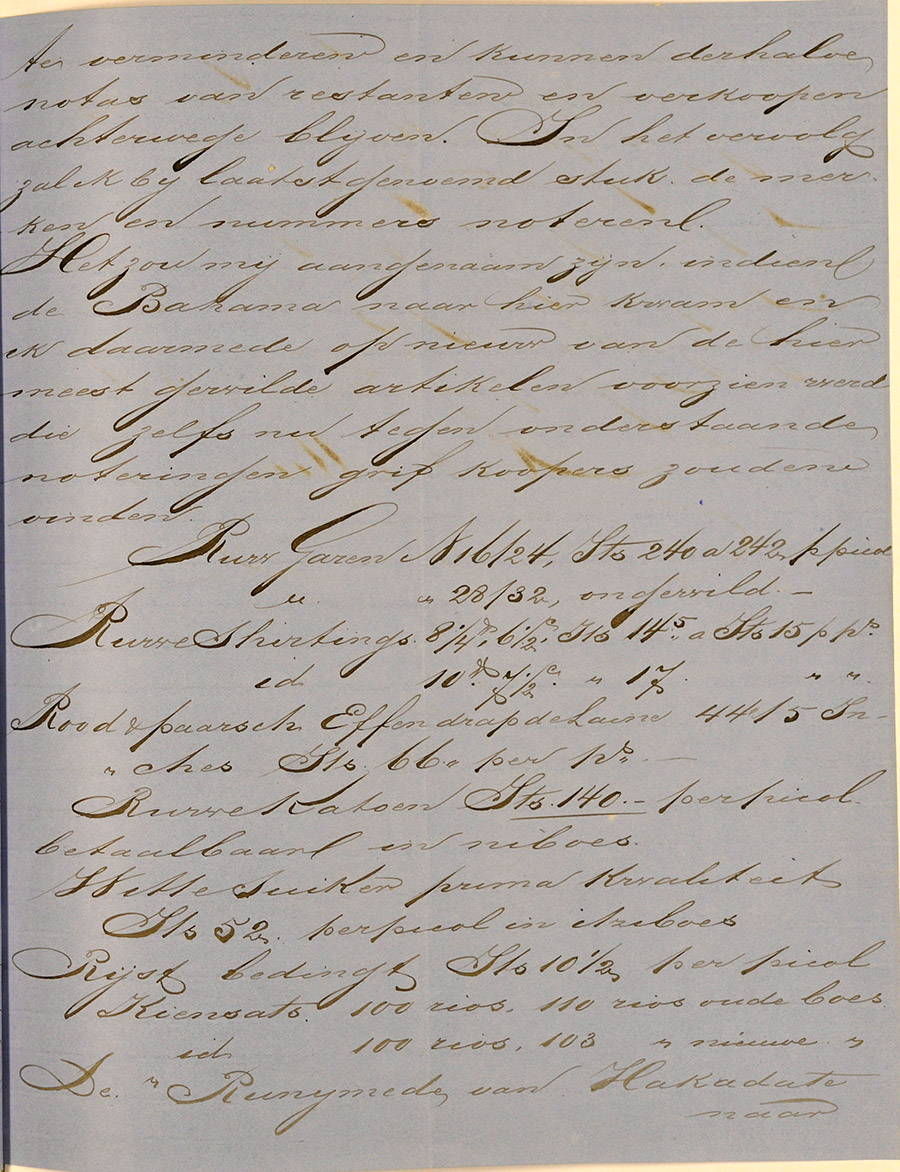 te verminderen en kunnen derhalve
notas van restanten en verkoopen
achterwege blijven. In het vervolg
zal ik bij laatstgenoemd stuk de mer-
ken en nummers noteren.
Het zou mij aangenaam zijn, indien
de Bahama naar hier kwam en
ik daarmede op nieuw van de hier
meest gewilde artikelen voorzien werd
die zelfs nu tegen onderstaande
noteringen grif koopers zouden
vinden.
Ruw Garen N 16/24, Sts 240 a 242 p picol
" " 28/32, ongewild. —
Ruwe Shirtings 8 1/4 lb 6 1/2 c Sts 14.5 a Sts 15 p ps.
id 10 lb 7 1/2 c " 17 " "
Rood & paarsch Effen drap de Laine 44/5 In-
" ches Sts. 66 " per ps. —
Ruwe Katoen Sts. 140.- per picol
betaalbaar in niboes.
Witte Suiker prima kwaliteit
Sts 52. per picol in itziboes
Rijst bedingt Sts 10 1/2 per picol
Kiensats 100 rios, 110 rios oude boes
id 100 rios, 103 " nieuwe "
De " Runymede van Hakadate
naar